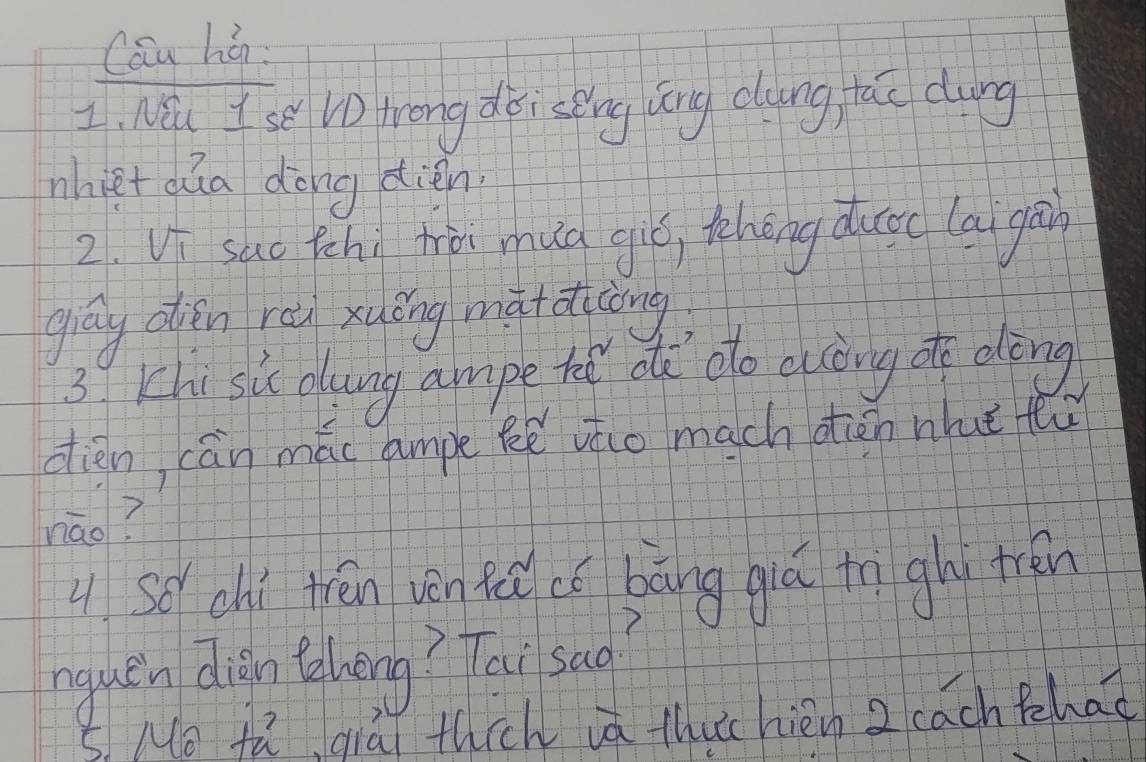 Câu hỏi:
1. Nêu 1 số VD trong đời sống ứng dụng, tác dụng
nhiệt của dòng điện.
2. Vì sao khi trời mưa gió, không được lại gần
giây điện rơi xuống mặt đường.
3. Khi sử dụng ampe kế để đo cường độ dòng
điện, cần mắc ampe kế vào mạch điện như thế
nào?
4. Số chỉ trên vôn kế có bằng giá trị ghi trên
nguồn điện không? Tại sao?
5. Mô tả, giải thích và thực hiện 2 cách khác